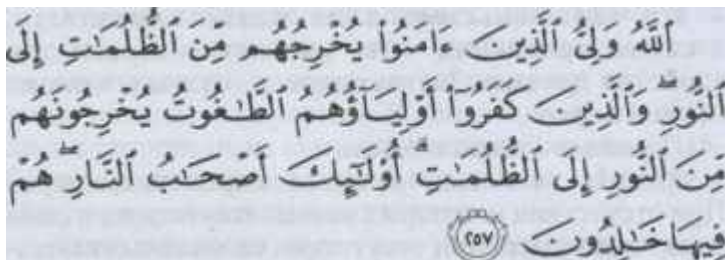 ٱللَّهُ وَلِىُّ ٱلَّذِينَ ءَامَنُوا۟ يُخْرِجُهُم مِّنَ ٱلظُّلُمَـٰتِ إِلَى
ٱلنُّورِ ۖ وَٱلَّذِينَ كَفَرُوٓا۟ أَوْلِيَآؤُهُمُ ٱلطَّـٰغُوتُ يُخْرِجُونَهُم
مِّنَ ٱلنُّورِ إِلَى ٱلظُّلُمَـٰتِ ۗ أُو۟لَـٰٓئِكَ أَصْحَـٰبُ ٱلنَّارِ ۖ هُمْ
فِيهَا خَـٰلِدُونَ ٢٥٧